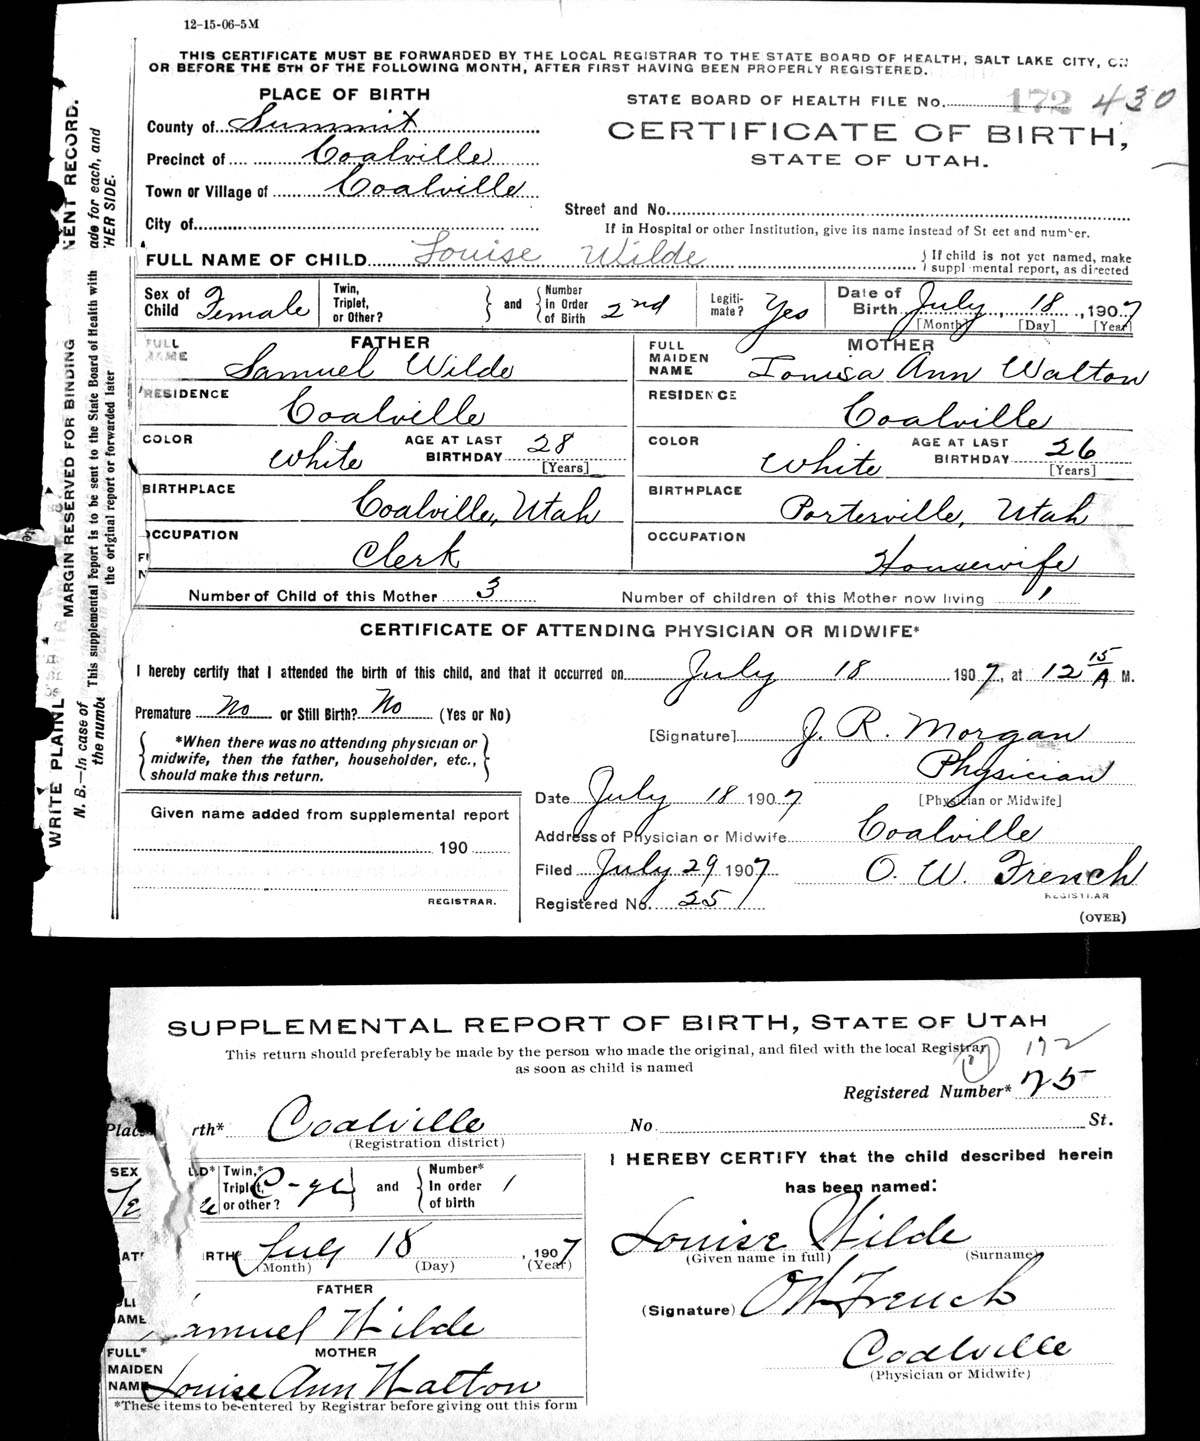 12-15-06-5M
THIS CERTIFICATE MUST BE FORWARDED BY THE LOCAL REGISTRAR TO THE STATE BOARD OF HEALTH, SALT LAKE CITY,
OR BEFORE THE 5TH OF THE FOLLOWING MONTH, AFTER FIRST HAVING BEEN PROPERLY REGISTERED.
PLACE OF BIRTH
STATE BOARD OF HEALTH FILE No. 172 430
County of Summit
CERTIFICATE OF BIRTH,
Precinct of Coalville
STATE OF UTAH.
Town or Village of Coalville
Street and No.
City of
If in Hospital or other Institution, give its name instead of St eet and number.
FULL NAME OF CHILD Louise Wilde
If child is not yet named, make
suppl mental report, as directed
Sex of Child Female
Twin, Triplet, or Other?
and
Number in Order of Birth 2nd
Legiti-mate? Yes
Date of Birth July 18, 1907
[Month] [Day] [Year]
FATHER
FULL NAME Samuel Wilde
MOTHER
FULL MAIDEN NAME Louisa Ann Walton
RESIDENCE Coalville
RESIDENCE Coalville
COLOR White
AGE AT LAST BIRTHDAY 28
[Years]
COLOR White
AGE AT LAST BIRTHDAY 26
[Years]
BIRTHPLACE Coalville, Utah
BIRTHPLACE Porterville, Utah
OCCUPATION Clerk
OCCUPATION Housewife
Number of Child of this Mother 3
Number of children of this Mother now living 1
CERTIFICATE OF ATTENDING PHYSICIAN OR MIDWIFE*
I hereby certify that I attended the birth of this child, and that it occurred on July 18 1907, at 12 15/A M.
Premature No or Still Birth? No (Yes or No)
*When there was no attending physician or
midwife, then the father, householder, etc.,
should make this return.
[Signature] J. R. Morgan
Physician
[Physician or Midwife]
Date July 18 1907
Given name added from supplemental report
190
REGISTRAR.
Address of Physician or Midwife Coalville
Filed July 29 1907 O. W. French
REGISTRAR
Registered No. 25
(OVER)
WRITE PLAINL
MARGIN RESERVED FOR BINDING
NENT RECORD.
N. B.—In case of
ade for each, and
the numbe
HER SIDE.
This supplemental report is to be sent to the State Board of Health with
the original report or forwarded later
SUPPLEMENTAL REPORT OF BIRTH, STATE OF UTAH
This return should preferably be made by the person who made the original, and filed with the local Registrar
as soon as child is named
172
Registered Number* 25
Place rth* Coalville
(Registration district)
No St.
SEX
LD*
Twin,* Triplet, or other?
and
Number* In order of birth 1
I HEREBY CERTIFY that the child described herein
has been named:
IRTH July 18, 1907
(Month) (Day) (Year)
Louise Wilde
(Given name in full) (Surname)
FATHER
AME amuel Wilde
(Signature) O W French
MOTHER
FULL* MAIDEN NAME Louise Ann Walton
Coalville
(Physician or Midwife)
*These items to be entered by Registrar before giving out this form